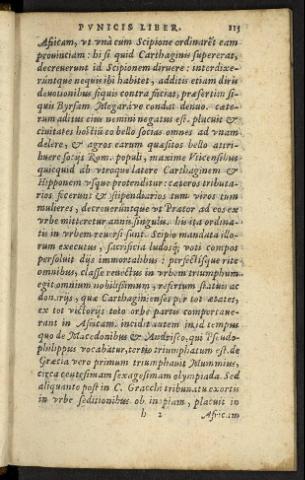 PVNICIS LIBER. 113
Africam, vt vnà cum Scipione ordinarēt eam
prouinciam: hi si quid Carthaginis supererat,
decreuerunt id Scipionem diruere: interdixe-
rúntque nequis ibi habitet, additis etiam diris
deuotionibus siquis contra faciat, præsertim si-
quis Byrsam Megaráve condat denuo. cæte-
rum aditus eius nemini negatus est. placuit &
ciuitates hostiū eo bello socias omnes ad vnam
delere, & agros earum quæsitos bello attri-
buere socijs Rom. populi, maxime Vticensibus
quicquid ab vtroque latere Carthaginem &
Hipponem vsque protenditur: cæteros tributa-
rios fecerunt & stipendiarios tum viros tum
mulieres, decreueruntque vt Prætor ad eos ex
vrbe mitteretur annis singulis. his ita ordina-
tis in vrbem reuersi sunt. Scipio mandata illo-
rum executus, sacrificia ludosq; voti compos
persoluit dijs immortalibus: perfectísque rite
omnibus, classe reuectus in vrbem triumphum
egit omnium nobilissimum, refertum statuis ac
donarijs, quæ Carthaginenses per tot ætates,
ex tot victorijs toto orbe partis comportaue-
rant in Africam. incidit autem in id tempus
quo de Macedonibus & Andrisco, qui Pseudo-
philippus vocabatur, tertiò triumphatum est. de
Græcia vero primum triumphauit Mummius,
circa centesimam sexagesimam olympiada. Sed
aliquanto post in C. Gracchi tribunatu exortis
in vrbe seditionibus ob inopiam, placuit in
h 2 Africam